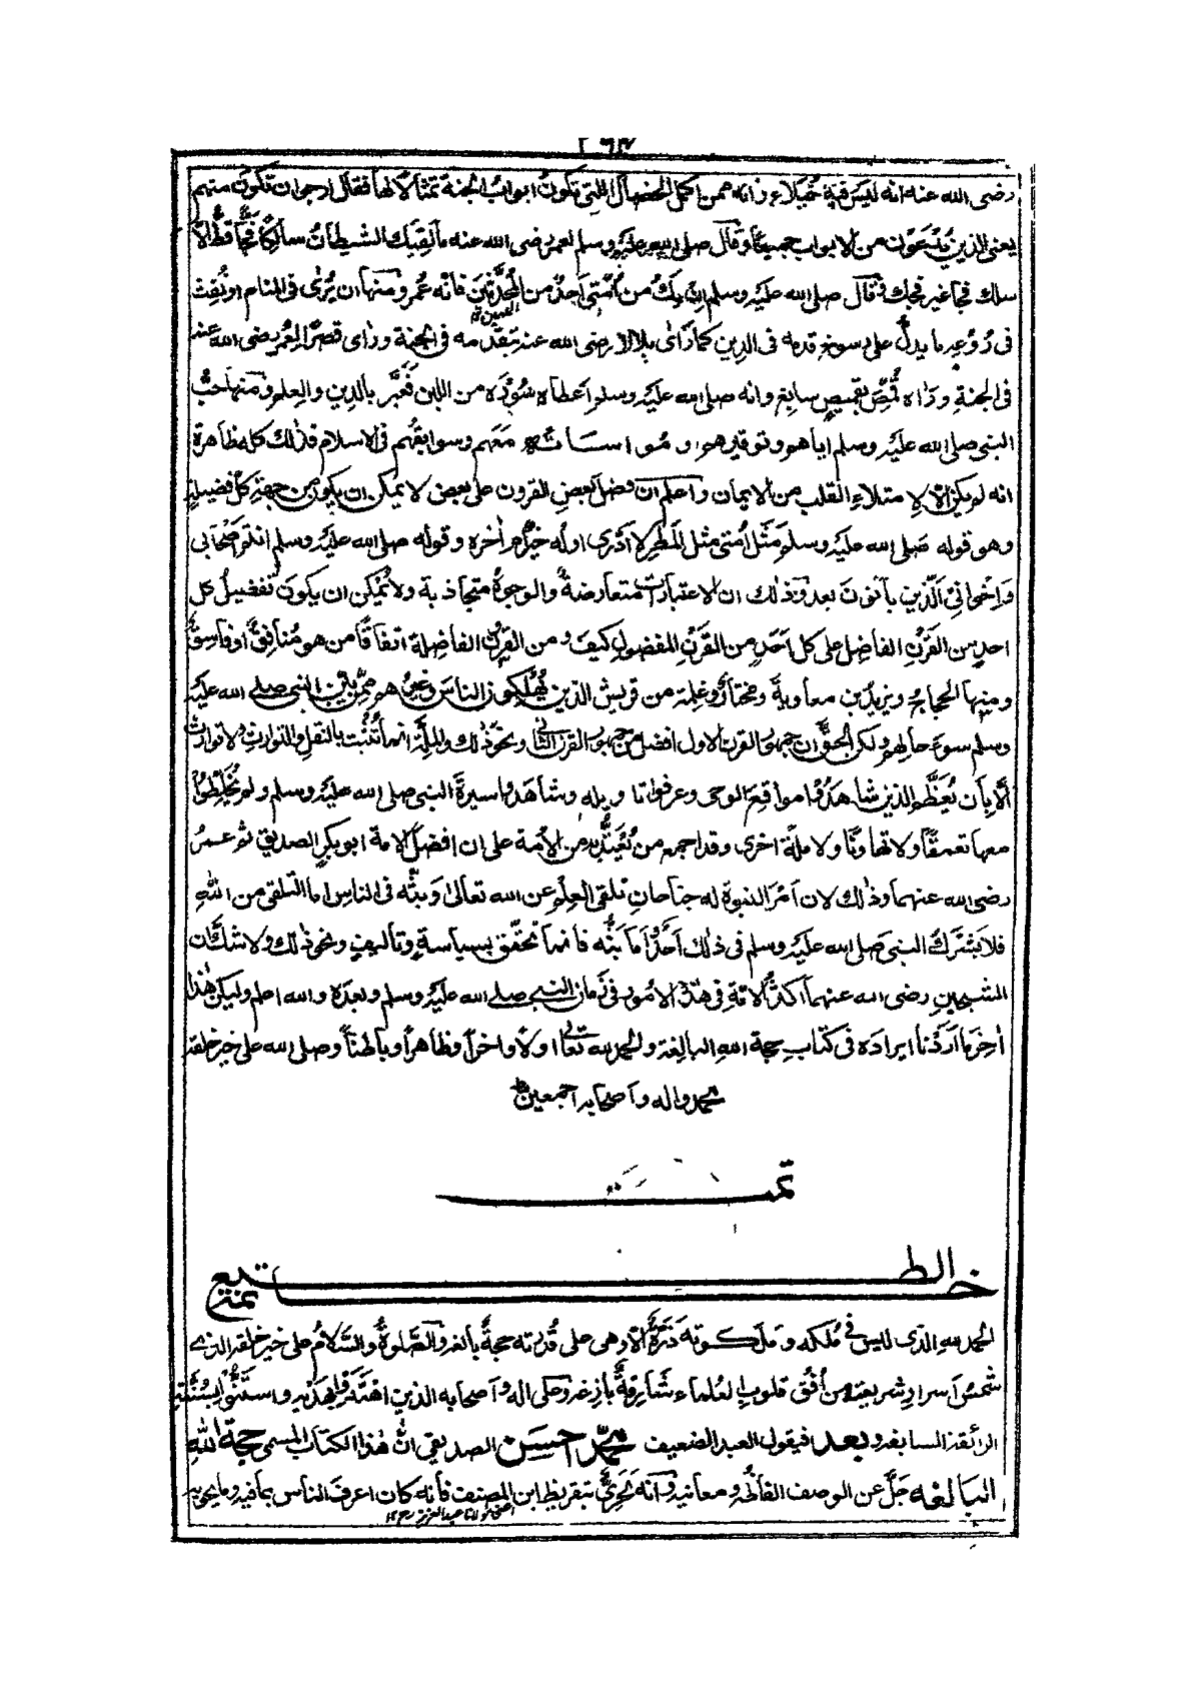 رضی الله عنه انه لیس فیه خُیَلاء و انه ممن اکمل الخصال اللتی تکون ابواب الجنة تمثالا لها فقال ارجو ان تکون منهم
یعنی الذین یُدْعَوْن من الابواب جمیعًا وقال صلی الله علیه وسلم لعمر رضی الله عنه ما لقیك الشیطان سالکًا فجًّا قط الا
سلك فجا غیر فجك و قال صلی الله علیه وسلم ان یك من اُمتی احد من المُحدَّثین فانه عمر و منها ان یُرٰی فی المنام او نُفِث
فی رُوعه ما یدل علی رسوخ قدمه فی الدین کما رَاٰی بلالا رضی الله عنه یتقدمه فی الجنة ورَاٰی قصرًا لِعُمر رضی الله عنه
فی الجنة ورَاٰه قُمِّص بقمیص سابغ وانه صلی الله علیه وسلم اعطاه سُؤْرَه من اللبن فعُبِّر بالدین والعلم و منها حبُّ
النبی صلی الله علیه وسلم ایاهم وتوقیرهم و مُواساته معهم وسوابقُهم فی الاسلام فذلك کله مظاهرة
انه لم یکن الا لامتلاء القلب من الایمان واعلم ان فضل بعض القرون علی بعض لا یمکن ان یکون من جهة کل فضیلة
وهو قوله صَلی الله علیه وسلم مَثَل اُمتی مثل المَطَر لا اَدْری اوله خیرٌ ام اٰخره وقوله صلی الله علیه وسلم انتم اَصْحَابی
وَاِخْوانِی الَّذِین یأتون بعدُ و ذٰلك ان الاعتبارات متعارضةٌ والوجوهُ متجاذبة ولا یُمکن ان یکون تفضیلُ کل
احدٍ من القَرْنِ الفاضِل علی کل اَحَدٍ من القَرْنِ المفضولِ کیف و من القرون الفاضِلة اتفاقًا من هو مُنافِقٌ او فاسِقٌ
ومنها الحجاجُ ویزیدُ بن معاویةَ ومختارٌ وغِلمة من قریش الذین یُهلکون الناس وغیرُ هم ممن بَیّن النبی صلے الله علیه
وسلم سوءَ حالهم ولکن الحقَّ ان جمهورَ القرن الاول افضل من جمهور القرن الثانی ونحو ذلك والملة انما تُثْبَت بالنقل والتوارث ولا توارثَ
الا بأن یُعَظَّم الذین شاهَدُوا مواقِعَ الوحی وعرفوا تاویله وشاهَدُوا سیرةَ النبی صلی الله علیه وسلم ولم یُخلِطوا
معها تعمقًا ولا تهاونًا ولا ملةً اخری وقد اجمع من یُعْتَدُّ به من الاُمة علی ان افضلَ الامة ابوبکرٍ الصدیق ثم عمرُ
رضی الله عنهما و ذٰلك لان اَمْرَ النبوة له جناحانِ تلقی العِلم عن الله تعالیٰ وَبَثُّه فی الناس اما التلقی من اللهِ
فلا یَشْرَكُ النبیَّ صلی الله علیه وسلم فی ذٰلك اَحَدٌ و اَما بَثُّه فانما تحقّق بسیاسةٍ وتألیفٍ ونحو ذٰلك ولا شك ان
الشیخین رضی الله عنهما اَکثرُ الاُمةِ فی هٰذه الامُور فی زَمان النبی صلے الله علیه وسلم وبعدَه والله اعلم ولیکن هٰذا
اٰخرَ ما اَرَدْنا ایرادَه فی کتابِ حجة اللهِ البالِغة والحمد لله تعالیٰ اولاً واٰخراً وظاهراً وباطناً وصلی الله علی خیر خلقه
محمد واٰله واَصحابه اجمعین
تمت
خاتمة الطبع
الحمد لله الذی لیس فی مُلکه و مَلَکوته ذَرَّةٌ الا وهی علی قُدرته حجةٌ بالغة والصَّلوةُ والسَّلامُ علی خیر خلقه الذے
شمسُ اَسرارِ شریعته من اُفُق قلوبِ العُلماء شَارِقةٌ بازِغة وعلی اٰله واَصحابه الذین اهْتَدَوا بهَدْیه واستَنُّوا بسُنَّته
الرائقة السابغة وبعد فیقول العبد الضعیف محمد احسن الصدیقی انَّ هٰذا الکتابَ المسمی حجة الله
البالغة جَلَّ عن الوصف الفاظُه ومعانیه و انه لَحَرِیٌّ بتقریظ ابن المصنف فانه کان اعرفَ الناس بما فیه وما یحویه
اعنی مولانا عبد العزیز رح ۱۲